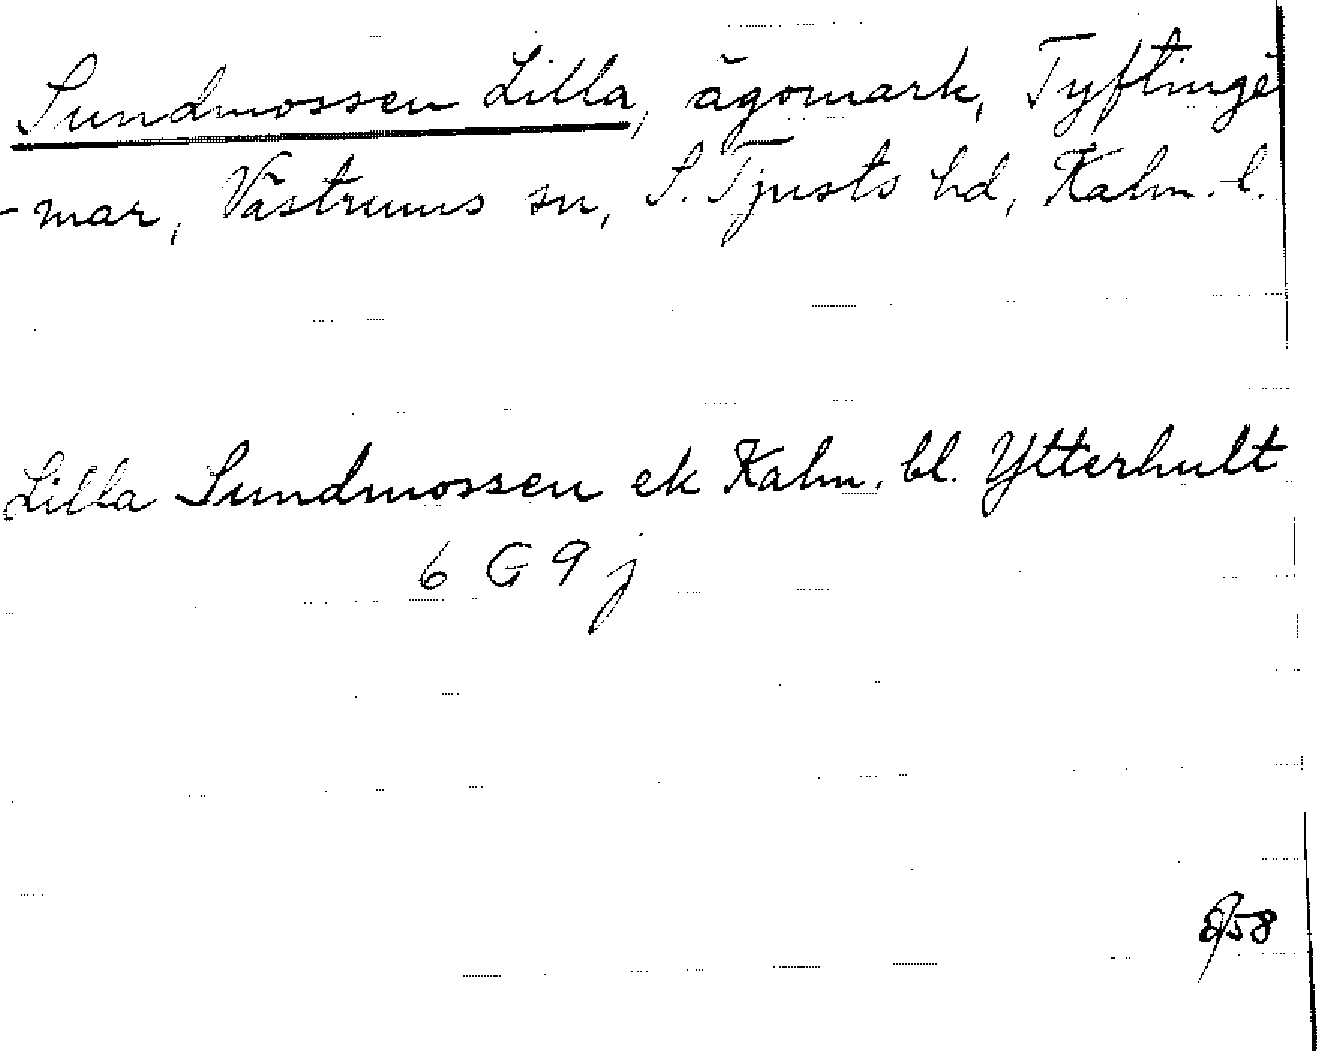 Sundmossen Lilla, ägomark, Tyftinge
-mar, Västrums sn, S. Tjusts hd, Kalm. l.
Lilla Sundmossen ek Kalm. bl. Ytterhult
6 G 9 j